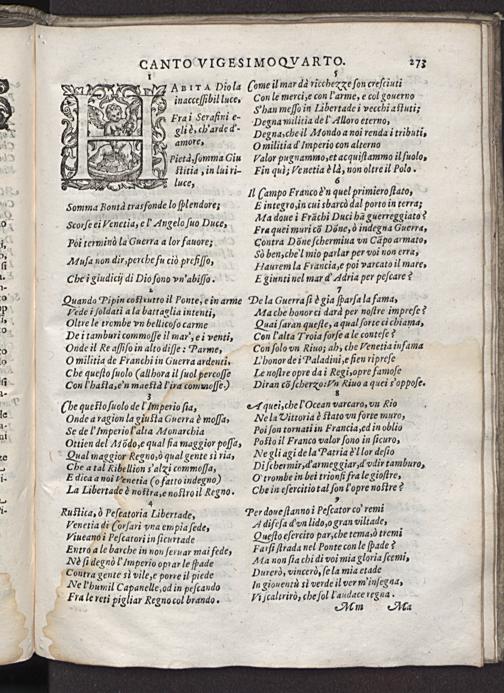 CANTO VIGESIMOQVARTO. 273
1
HABITA Dio la
inaccessibil luce,
Fra i Serafini e-
gli è, ch'arde d'-
amore,
Pietà, somma Giu
stitia, in lui ri-
luce,
Somma Bontà trasfonde lo splendore;
Scorse ei Venetia, e l'Angelo suo Duce,
Poi terminò la Guerra a lor favore;
Musa non dir, perche fu ciò prefisso,
Che i giudicij di Dio sono vn'abisso.
2
Quando Pipin costrutto il Ponte, e in arme
Vede i soldati a la battaglia intenti,
Oltre le trombe vn bellicoso carme
De i tamburi commosse il mar', e i venti,
Onde il Re assiso in alto disse: Parme,
O militia de Franchi in Guerra ardenti,
Che questo suolo (allhora il suol percosse
Con l'hasta, e'n maestà l'ira commosse.)
3
Che questo suolo de l'Imperio sia,
Onde a ragion la giusta Guerra è mossa,
Se de l'Imperio l'alta Monarchia
Ottien del Mōdo, e qual sia maggior possa,
Qual maggior Regno, ò qual gente si ria,
Che a tal Ribellion s'alzi commossa,
E dica a noi Venetia (o fatto indegno)
La Libertade è nostra, e nostro il Regno.
4
Rustica, ò Pescatoria Libertade,
Venetia di Corsari vna empia sede,
Viueano i Pescatori in sicurtade
Entro a le barche in non seruar mai fede,
Nè si degnò l'Imperio oprar le spade
Contra gente sì vile, e porre il piede
Ne l'humil Capanelle, od in pescando
Fra le reti pigliar Regno col brando.
5
Come il mar dà ricchezze son cresciuti
Con le merci, e con l'arme, e col gouerno
S'han messo in Libertade i vecchi astuti;
Degna militia de l'Alloro eterno,
Degna, che il Mondo a noi renda i tributi,
O militia d'Imperio con alterno
Valor pugnammo, et acquistammo il suolo,
Fin quì; Venetia è là, non oltre il Polo.
6
Il Campo Franco è'n quel primiero stato,
E integro, in cui sbarcò dal porto in terra;
Ma doue i Frāchi Duci hā guerreggiato?
Fra quei muri cō Dōne, ò indegna Guerra,
Contra Dōne schermiua vn Cāpo armato,
Sò ben, che'l mio parlar per voi non erra,
Haurem la Francia, e poi varcato il mare,
E giunti nel mar d'Adria per pescare?
7
De la Guerra si è gia sparsa la fama,
Ma che honor ci darà per nostre imprese?
Quai saran queste, a qual sorte ci chiama,
Con l'alta Troia forse a le contese?
Con solo vn Riuo; ah, che Venetia infama
L'honor de i Paladini, e sien riprese
Le nostre opre da i Regi, opre famose
Diran cō scherzo: Vn Riuo a quei s'oppose.
8
A quei, che l'Ocean varcaro, vn Rio
Ne la Vittoria è stato vn forte muro,
Poi son tornati in Francia, ed in oblio
Posto il Franco valor sono in sicuro,
Ne gli agi de la Patria è'l lor desio
Di schermir, d'armeggiar, d'vdir tamburo,
O trombe in bei trionfi fra le giostre,
Che in esercitio tal son l'opre nostre?
9
Per doue stanno i Pescator co' remi
A difesa d'vn lido, o gran viltade,
Questo esercito par, che tema, ò tremi
Farsi strada nel Ponte con le spade?
Ma non sia chi di voi mia gloria scemi,
Durerò, vincerò, se la mia etade
In giouentù sì verde il ver m'insegna,
Vi scaltrirò, che sol l'audace regna.
Mm Ma